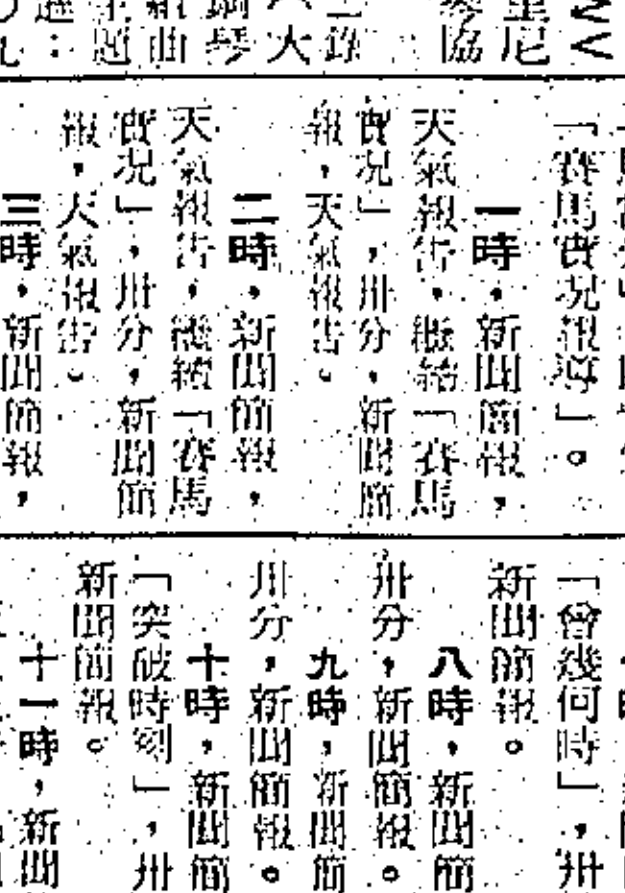 尼
協
錄
大
鋼琴
組曲
主題
「賽馬實况報導」。
一時，新聞簡報，
天氣報告，繼續「賽馬
實况」，卅分，新聞簡
報，天氣報告。
二時，新聞簡報，
天氣報告，繼續「賽馬
實况」，卅分，新聞簡
報，天氣報告。
三時，新聞簡報，
「曾幾何時」，卅
新聞簡報。
八時，新聞簡
卅分，新聞簡報。
九時，新聞簡
卅分，新聞簡報。
十時，新聞簡
「突破時刻」，卅
新聞簡報。
十一時，新聞